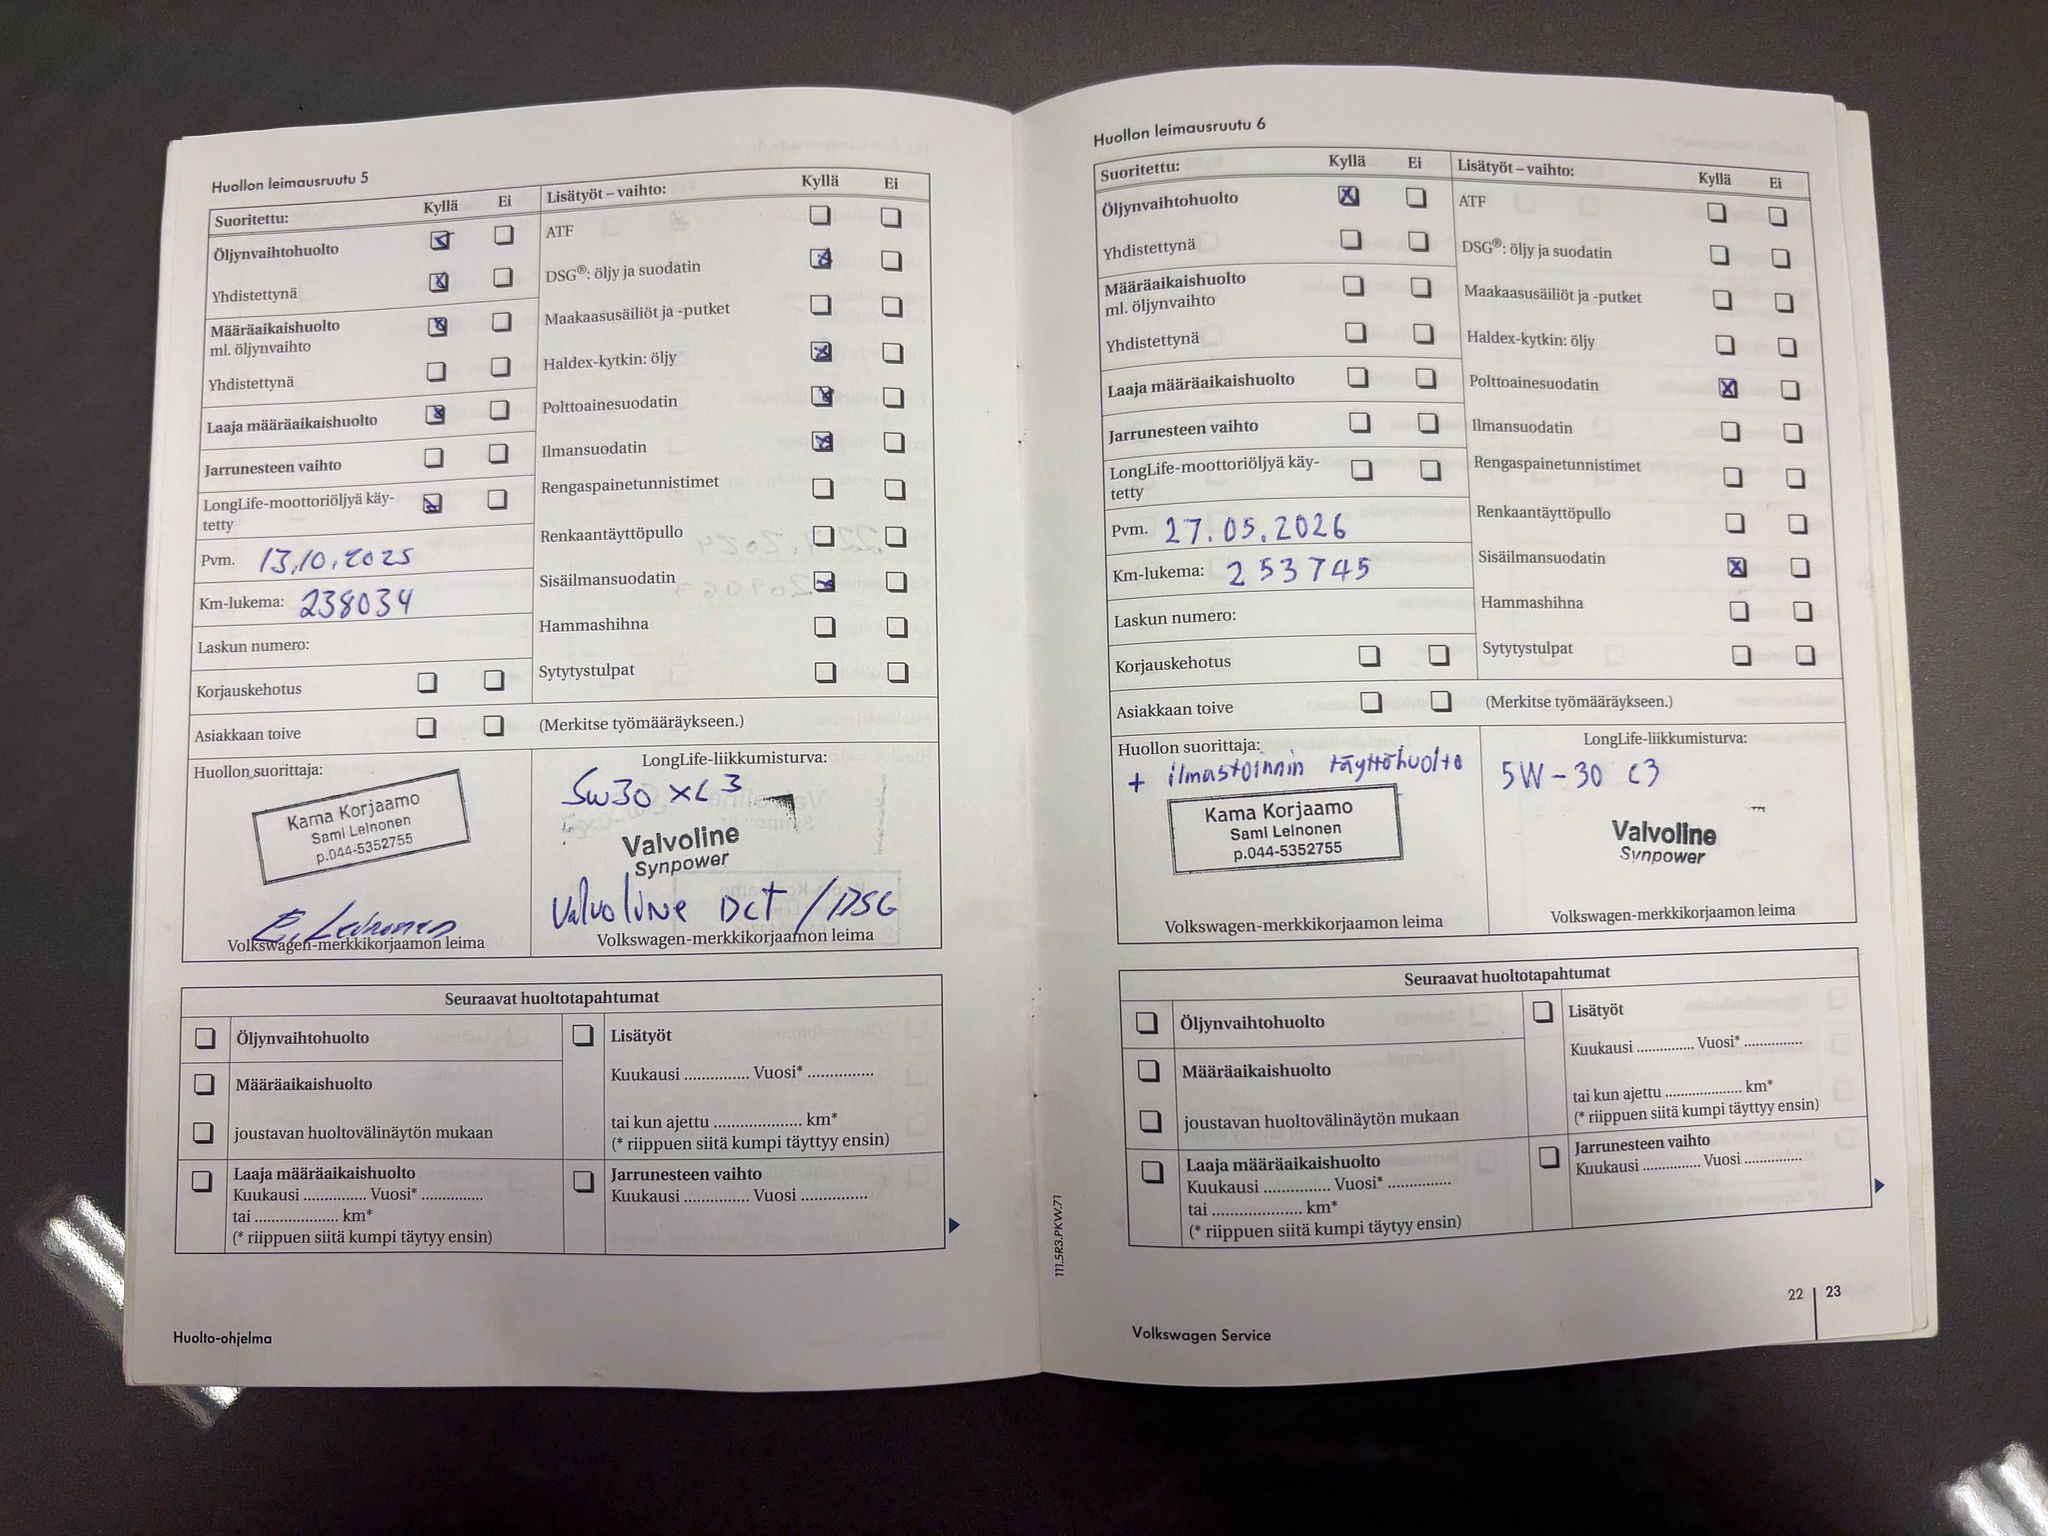 Huollon leimausruutu 5
Suoritettu: Kyllä Ei
Öljynvaihtohuolto
Yhdistettynä
Määräaikaishuolto
ml. öljynvaihto
Yhdistettynä
Laaja määräaikaishuolto
Jarrunesteen vaihto
LongLife-moottoriöljyä käy-
tetty
Pvm. 13.10.2025
Km-lukema: 238034
Laskun numero:
Korjauskehotus
Asiakkaan toive
Lisätyöt – vaihto: Kyllä Ei
ATF
DSG®: öljy ja suodatin
Maakaasusäiliöt ja -putket
Haldex-kytkin: öljy
Polttoainesuodatin
Ilmansuodatin
Rengaspainetunnistimet
Renkaantäyttöpullo
Sisäilmansuodatin
Hammashihna
Sytytystulpat
(Merkitse työmääräykseen.)
Huollon suorittaja:
Kama Korjaamo
Sami Leinonen
p.044-5352755
E. Leinonen
Volkswagen-merkkikorjaamon leima
LongLife-liikkumisturva:
5W30 XL3
Valvoline
Synpower
Valvoline DCT / DSG
Volkswagen-merkkikorjaamon leima
Seuraavat huoltotapahtumat
Öljynvaihtohuolto
Määräaikaishuolto
joustavan huoltovälinäytön mukaan
Laaja määräaikaishuolto
Kuukausi ............... Vuosi* ..............
tai .................... km*
(* riippuen siitä kumpi täytyy ensin)
Lisätyöt
Kuukausi ............... Vuosi* ...............
tai kun ajettu ..................... km*
(* riippuen siitä kumpi täyttyy ensin)
Jarrunesteen vaihto
Kuukausi ............... Vuosi ...............
Huolto-ohjelma
Huollon leimausruutu 6
Suoritettu: Kyllä Ei
Öljynvaihtohuolto
Yhdistettynä
Määräaikaishuolto
ml. öljynvaihto
Yhdistettynä
Laaja määräaikaishuolto
Jarrunesteen vaihto
LongLife-moottoriöljyä käy-
tetty
Pvm. 27.05.2026
Km-lukema: 253745
Laskun numero:
Korjauskehotus
Asiakkaan toive
Lisätyöt – vaihto: Kyllä Ei
ATF
DSG®: öljy ja suodatin
Maakaasusäiliöt ja -putket
Haldex-kytkin: öljy
Polttoainesuodatin
Ilmansuodatin
Rengaspainetunnistimet
Renkaantäyttöpullo
Sisäilmansuodatin
Hammashihna
Sytytystulpat
(Merkitse työmääräykseen.)
Huollon suorittaja:
+ ilmastoinnin täyttöhuolto
Kama Korjaamo
Sami Leinonen
p.044-5352755
Volkswagen-merkkikorjaamon leima
LongLife-liikkumisturva:
5W-30 C3
Valvoline
Synpower
Volkswagen-merkkikorjaamon leima
Seuraavat huoltotapahtumat
Öljynvaihtohuolto
Määräaikaishuolto
joustavan huoltovälinäytön mukaan
Laaja määräaikaishuolto
Kuukausi ............... Vuosi* ...............
tai .................... km*
(* riippuen siitä kumpi täytyy ensin)
Lisätyöt
Kuukausi .............. Vuosi* ..............
tai kun ajettu ................... km*
(* riippuen siitä kumpi täyttyy ensin)
Jarrunesteen vaihto
Kuukausi .............. Vuosi ..............
111.5R3.PKW.71
22 23
Volkswagen Service